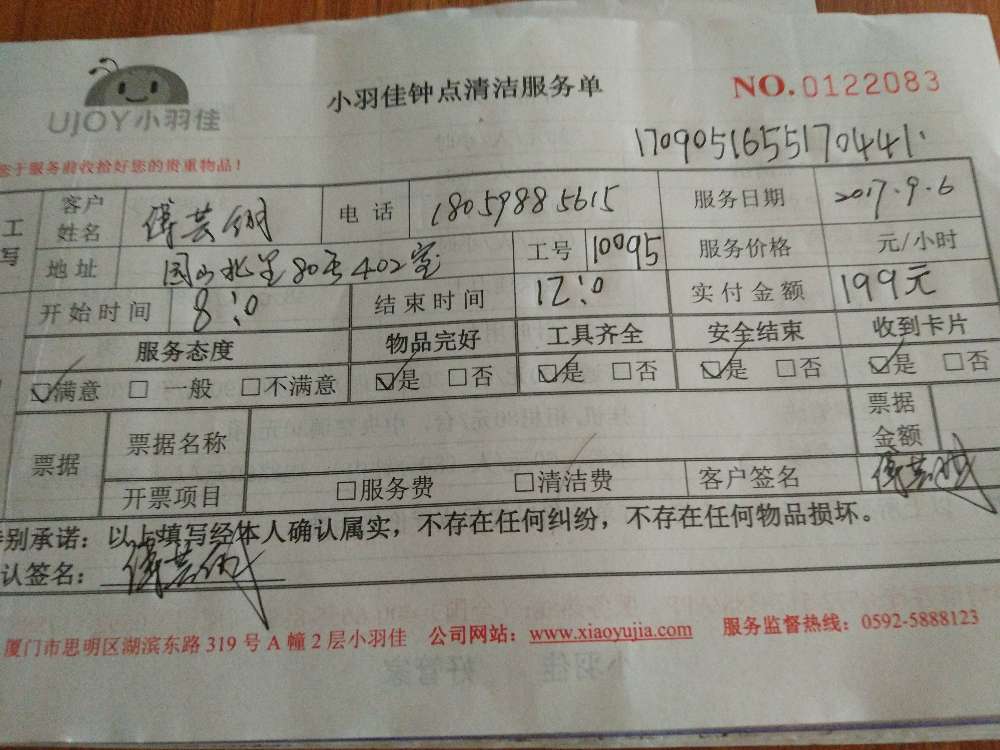 UJOY小羽佳
小羽佳钟点清洁服务单
NO.0122083
170905165517044​1
于服务前收拾好您的贵重物品!
工 客户姓名 电话 18059885615 服务日期 2017.9.6
写 地址 北里80号402室 工号 10095 服务价格 元/小时
开始时间 8:0 结束时间 12:0 实付金额 199元
服务态度 物品完好 工具齐全 安全结束 收到卡片
☑满意 □一般 □不满意 ☑是 □否 ☑是 □否 ☑是 □否 ☑是 □否
票据 票据名称 票据金额
开票项目 □服务费 □清洁费 客户签名
别承诺:以上填写经本人确认属实,不存在任何纠纷,不存在任何物品损坏。
认签名:
厦门市思明区湖滨东路319号A幢2层小羽佳 公司网站:www.xiaoyujia.com 服务监督热线:0592-5888123